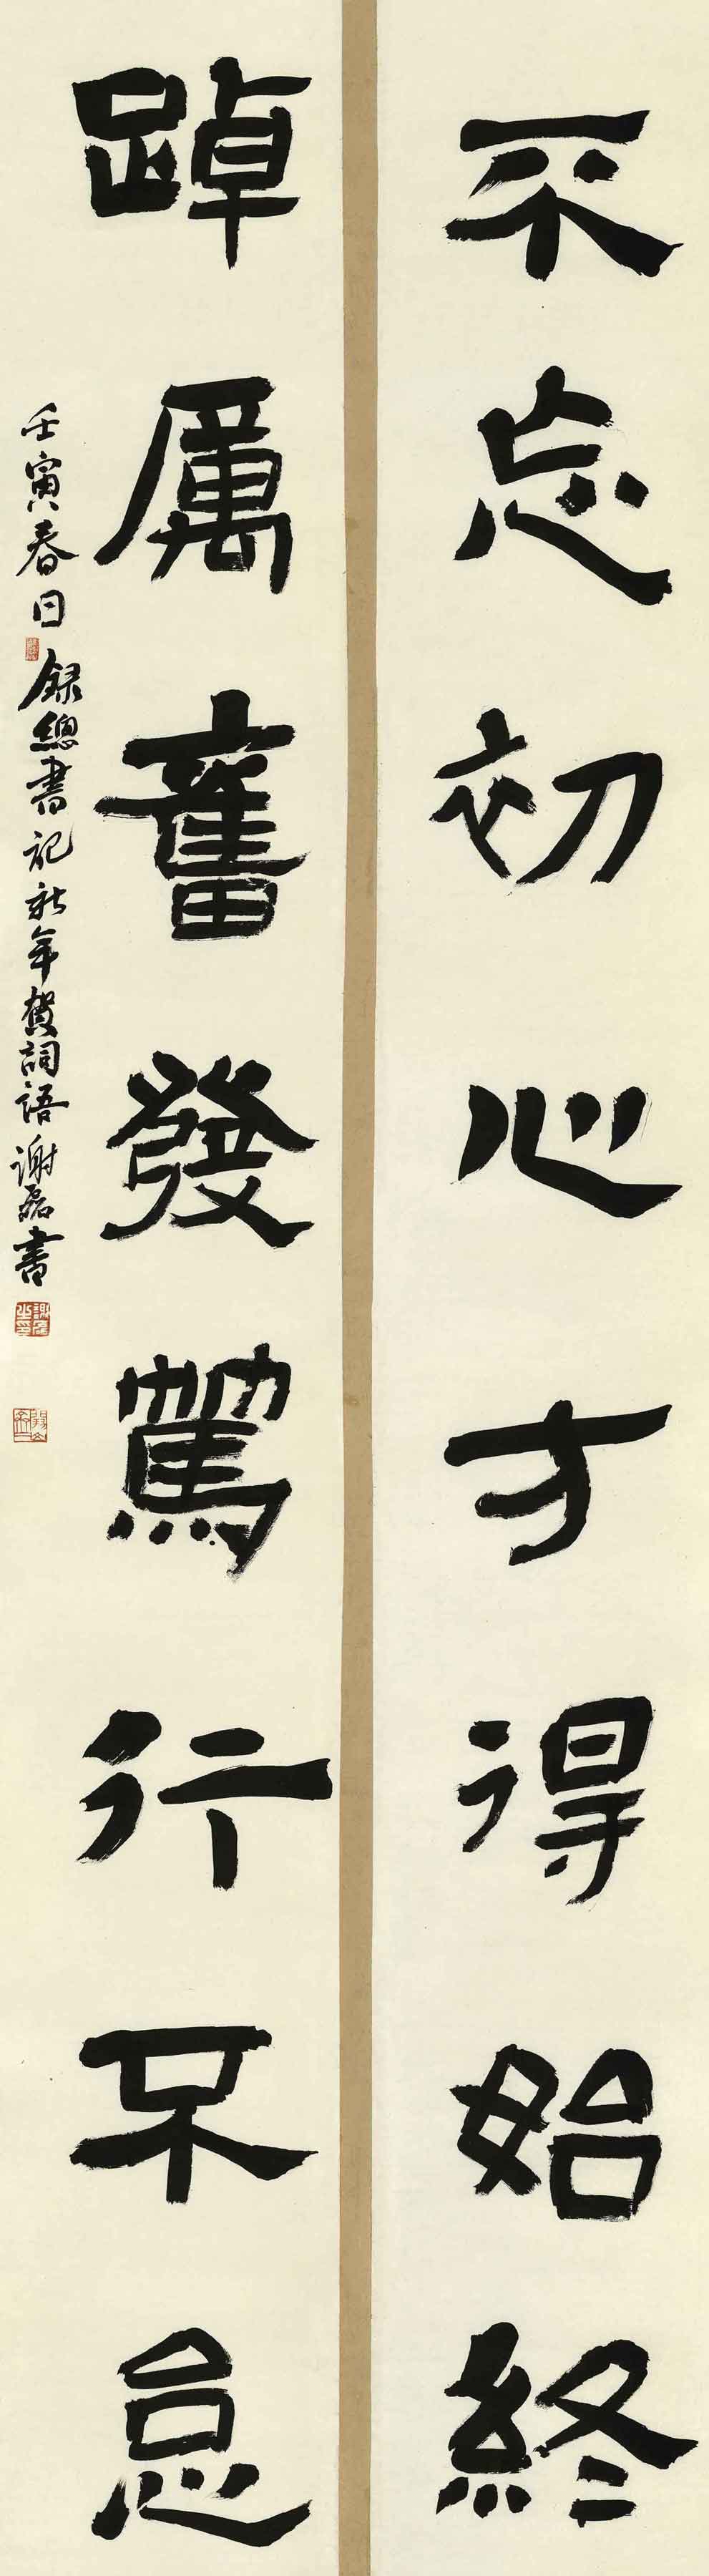 不忘初心方得始終
踔厲奮發篤行不怠
壬寅春日録總書記新年賀詞語謝磊書